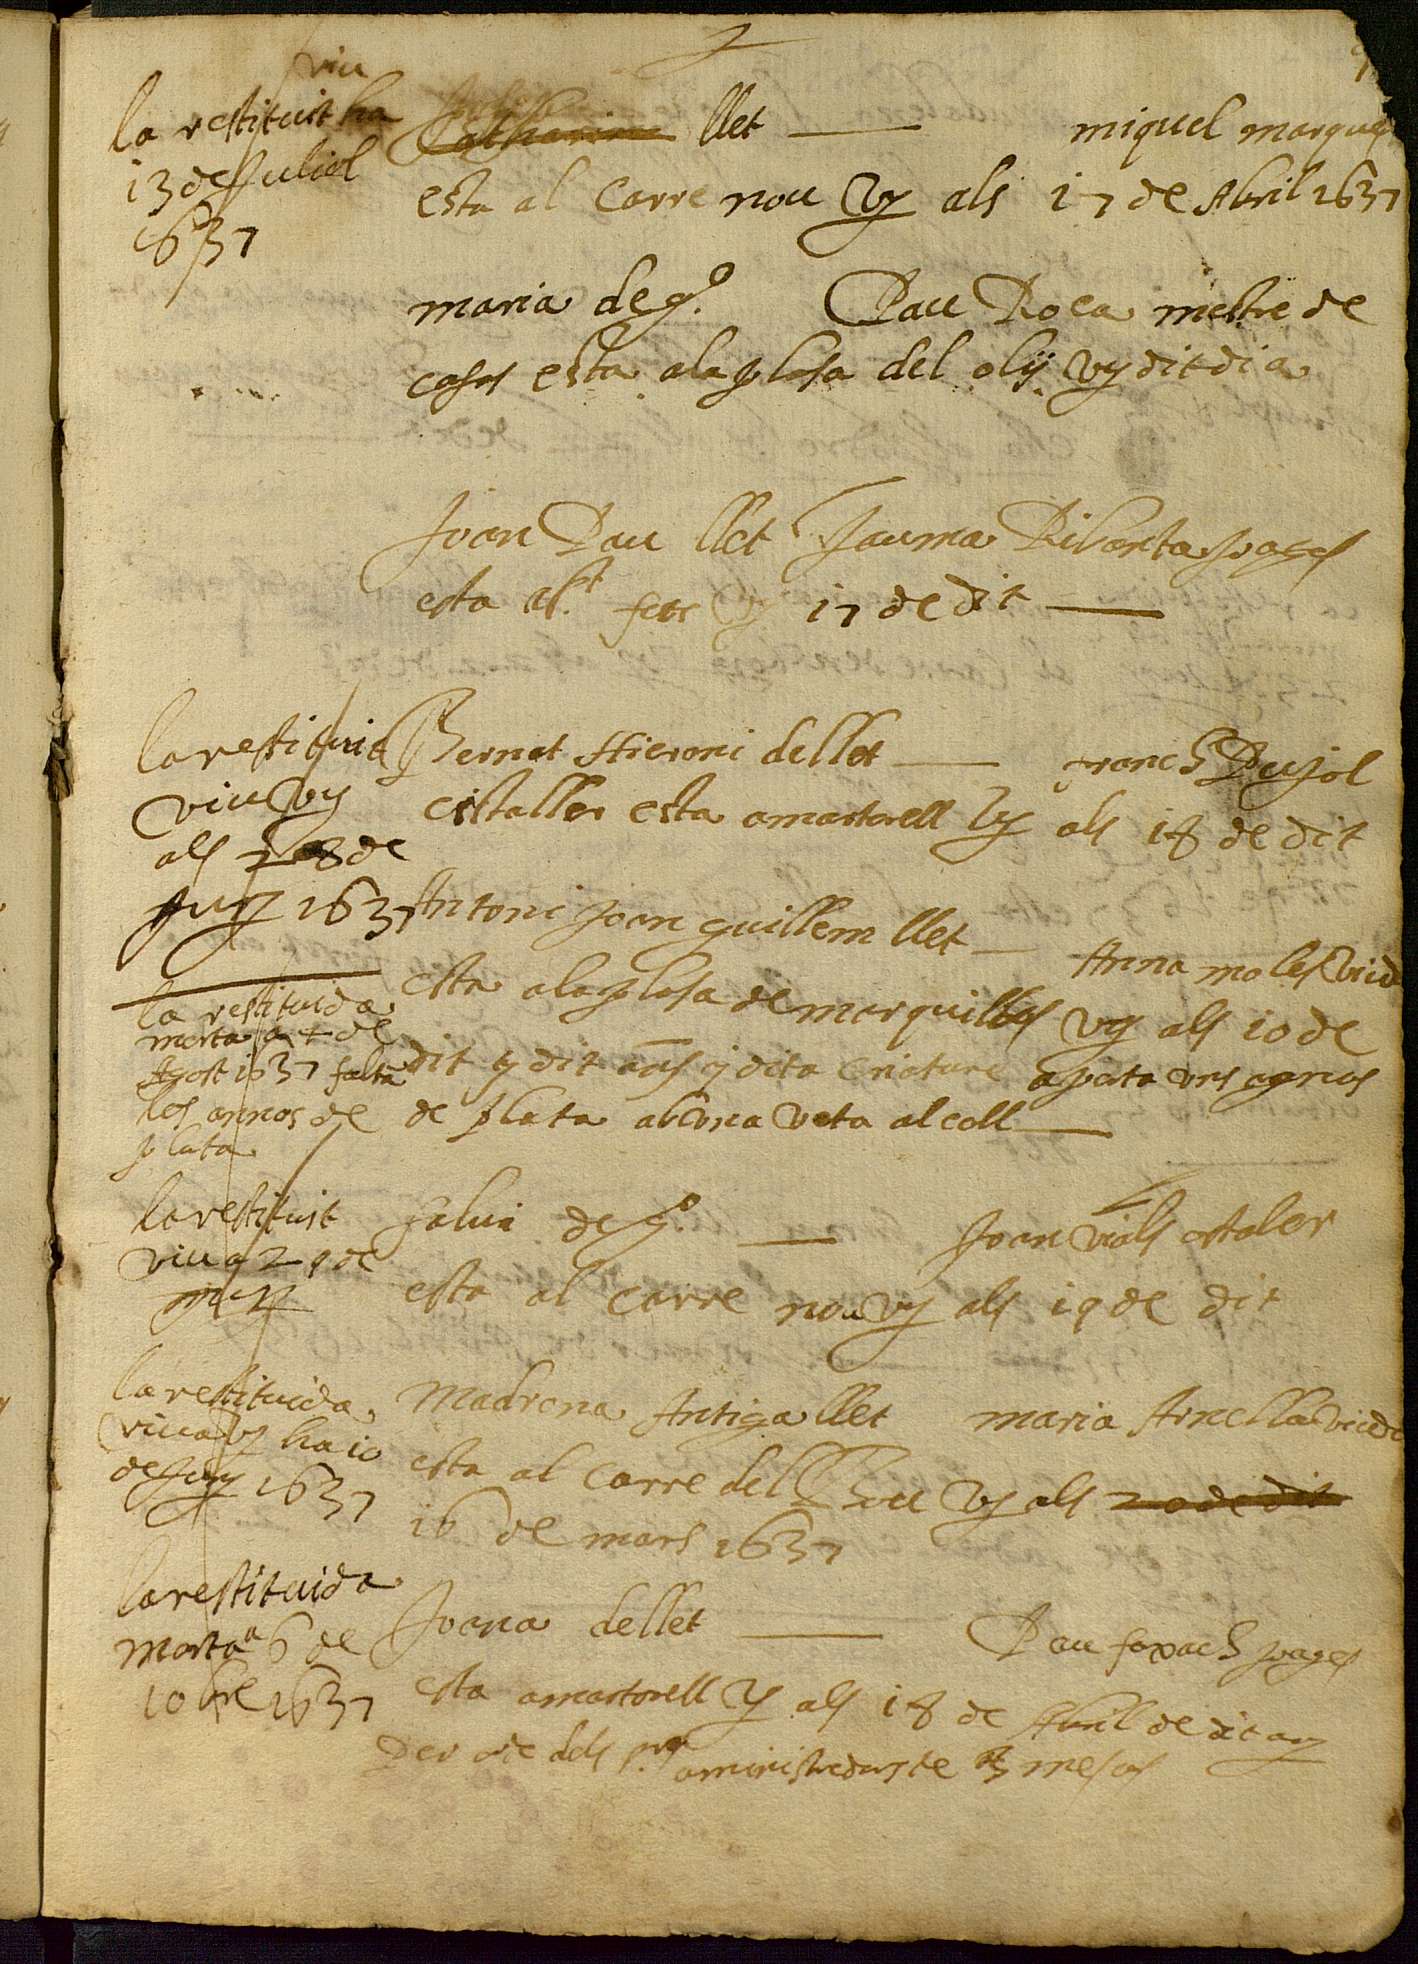 viu
la restituit ha
13 de Juliol
1637
llet miquel marques
esta al Carre nou vy als 17 de Abril 1637
maria de gº. Pau Roca mestre de
casas esta ala plasa del olÿ vy dit dia
Joan Pau llet Jauma Ribarta pages
esta a st. fets vy 17 de dit
la restituit
viu vy
als 28 de
Juny 1637
Bernat Hieroni de llet franch Pujol
esta amartorell vy als 18 de dit
Antoni Joan guillem llet Anna moles viud
esta ala plasa de marquillas vy als 10 de
dit y dit añs y dita criatura aporta uns agnus
de plata ab una veta al coll
la restituida
morta a 4 de
Agost 1637 falta
los annos de
plata
la restituit
viu a 29 de
juny
salvi de gº. Joan vials ostaler
esta al carre nou vy als 19 de dit
la restituida
viua vy ha 10
de Juny 1637
Madrona Antiga llet maria Arnella viuda
esta al carre del Bou vy als 20 de dit
16 de mars 1637
la restituida
morta a 6 de
10bre 1637
Joana de llet Pau foxach pages
esta amartorell vy als 18 de Abril de dit any
Per orde dels srs aministradors te 3 mesos